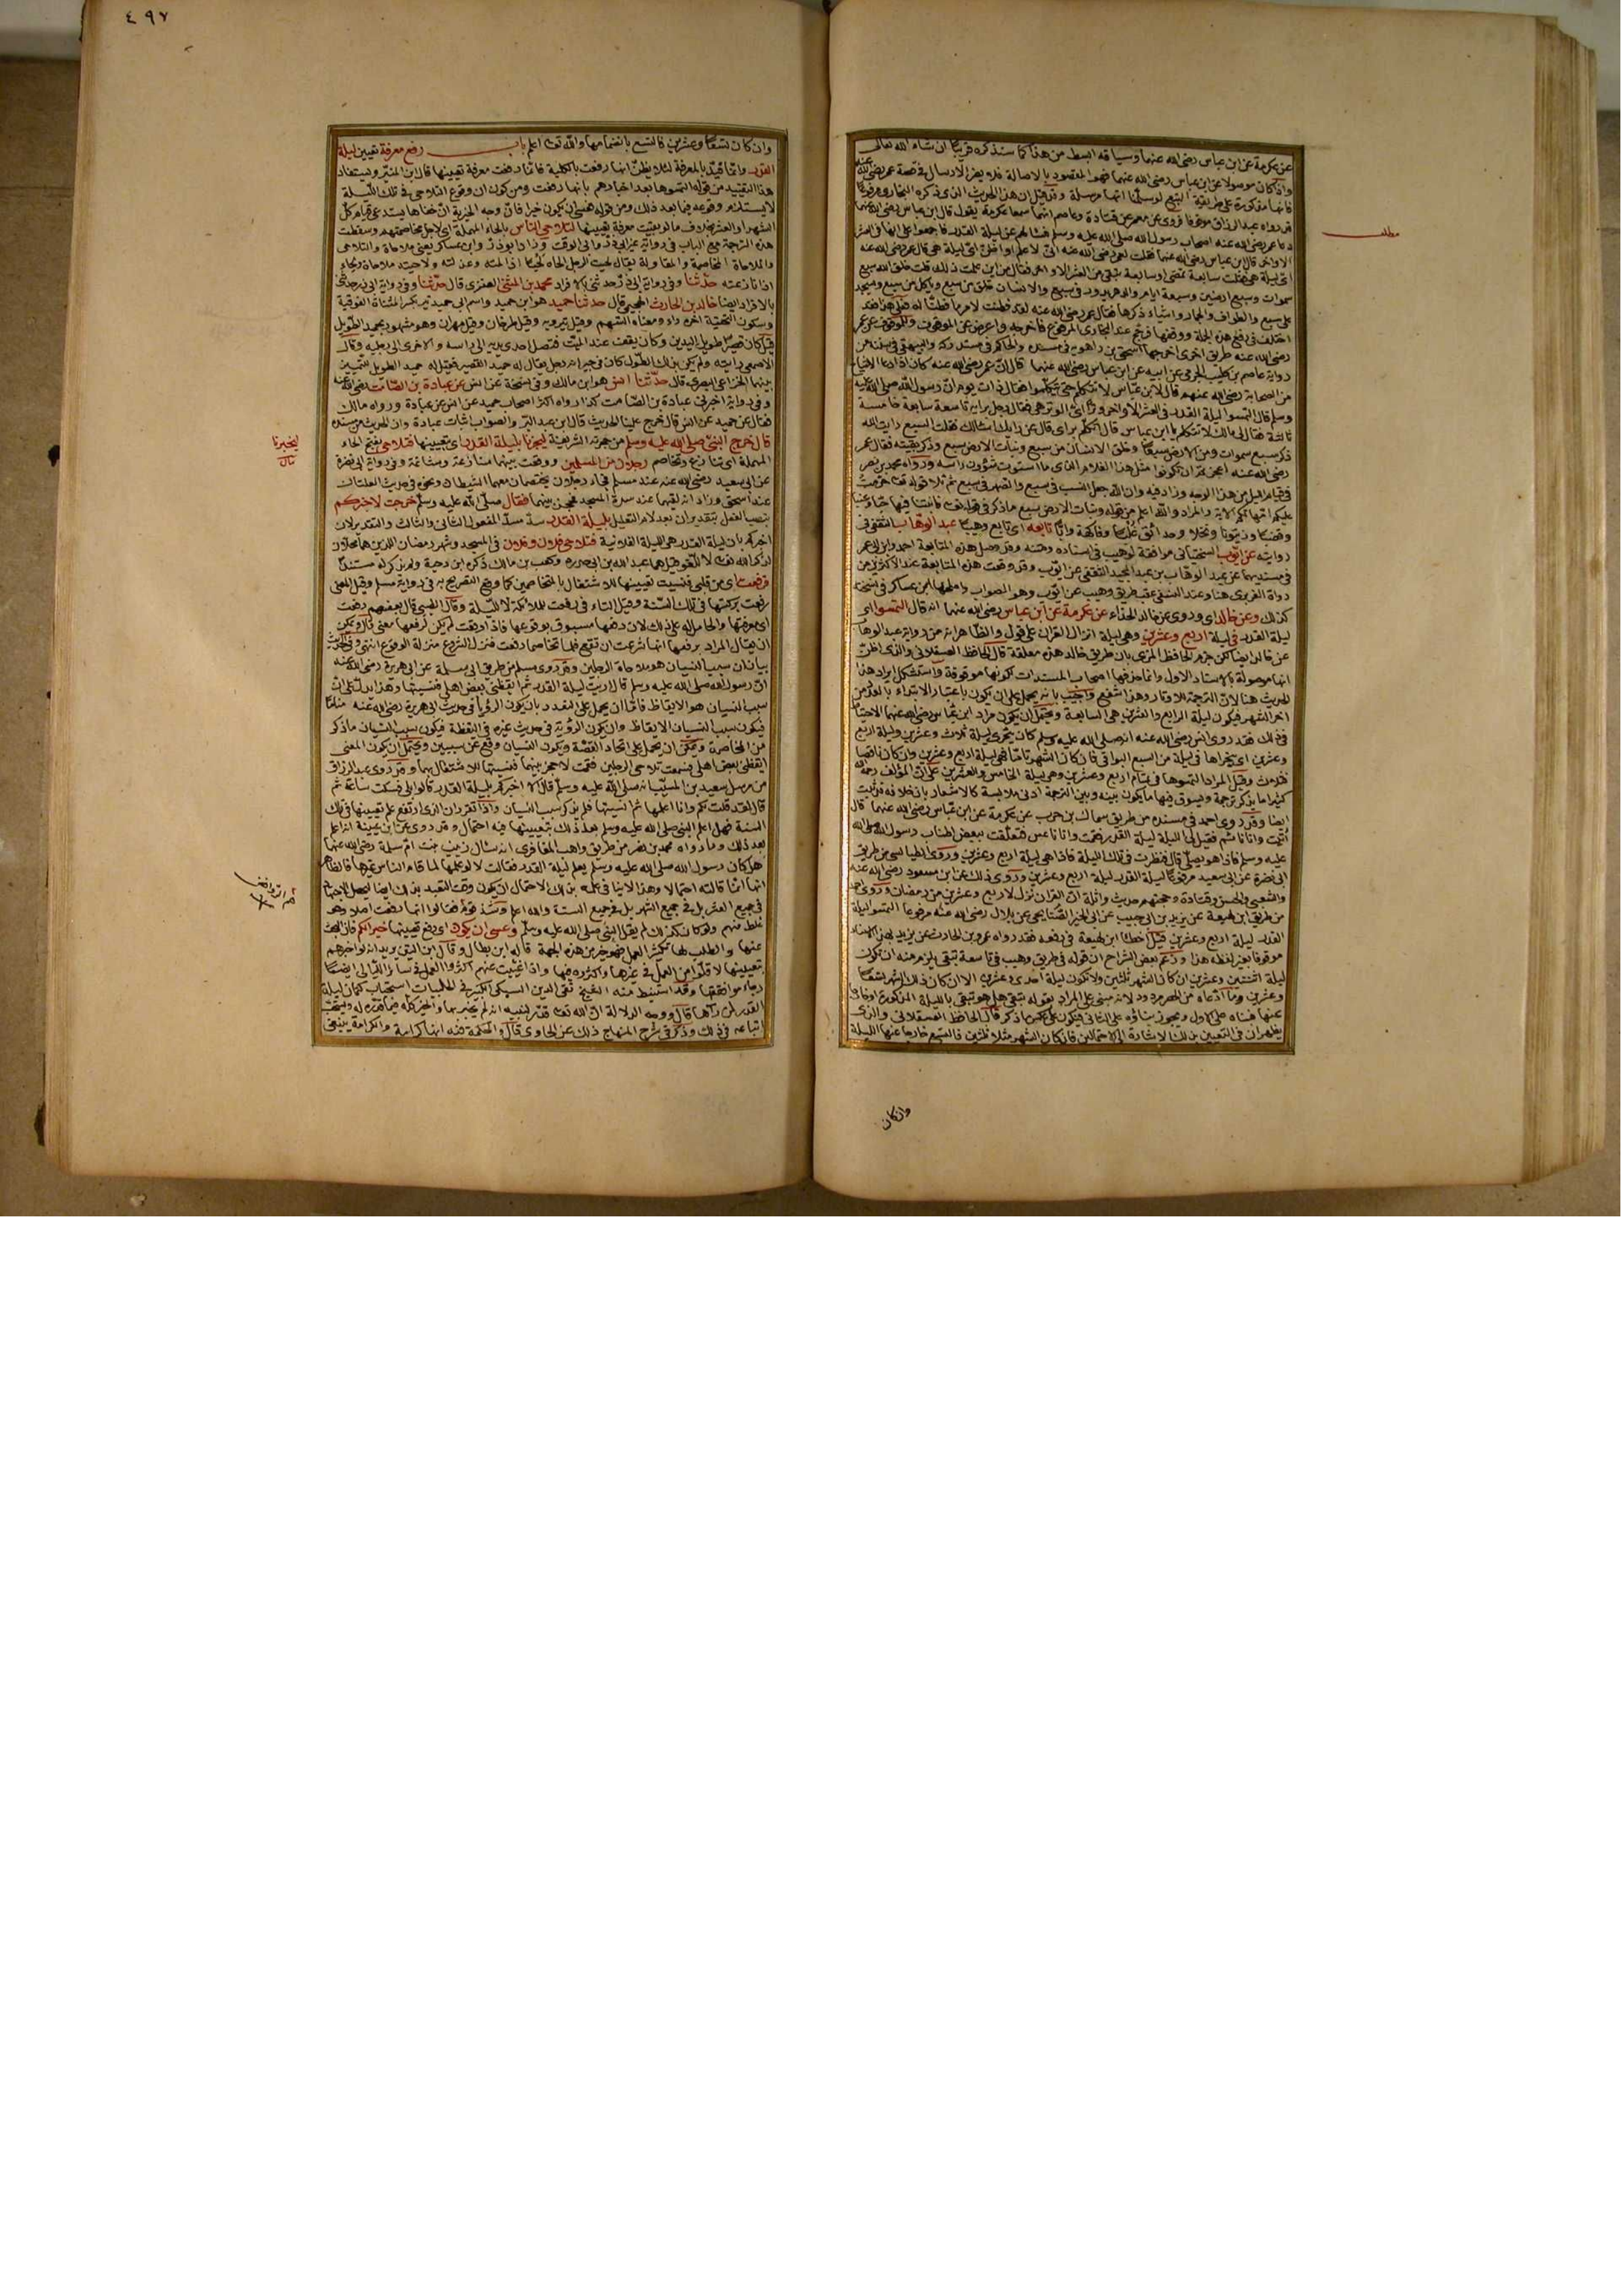 عن عكرمة عن ابن عباس رضى الله عنهما وسياقه ابسط من هذا كما سنذكره قريبا ان شاء الله تعالى
وان كان موصولا عن ابن عباس رضى الله عنهما فهو المقصود بالاصالة فلا يضر الارسال فى قصة عمر رضى الله عنه
فانها مذكورة على طريقة التبع لو سلمنا انها مرسلة
قد رواه عبد الرزاق موقوفا فروى عن معمر عن قتادة وعاصم انهما سمعا عكرمة يقول قال ابن عباس رضى الله عنهما
دعا عمر رضى الله عنه اصحاب رسول الله صلى الله عليه وسلم فسالهم عن ليلة القدر فاجمعوا على انها فى العشر
الاواخر قال ابن عباس رضى الله عنهما فقلت لعمر رضى الله عنه انى لاعلم او اظن اى ليلة هى قال عمر رضى الله عنه
اى ليلة هى فقلت سابعة تمضى او سابعة تبقى من العشر الاواخر فقال من اين علمت ذلك قلت خلق الله سبع
سموات وسبع ارضين وسبعة ايام والدهر يدور فى سبع والانسان خلق من سبع وياكل من سبع ويسجد
على سبع والطواف والجمار واشياء ذكرها فقال عمر رضى الله عنه لقد فطنت لامر ما فطنا له
رضى الله عنه طريق اخرى اخرجها اسحق بن راهويه فى مسنده والحاكم فى مستدركه
رواية عاصم بن كليب الجرمى عن ابيه عن ابن عباس رضى الله عنهما قال ان عمر رضى الله عنه كان اذا دعا الاشياخ
من الصحابة رضى الله عنهم قال لابن عباس لا تتكلم حتى يتكلموا فقال ذات يوم ان رسول الله صلى الله عليه
وسلم قال التمسوا ليلة القدر فى العشر الاواخر وترا اى الوتر هى فقال رجل برايه تاسعة سابعة خامسة
ثالثة فقال لى مالك لا تتكلم يا ابن عباس قال اتكلم براى قال عن رايك اسالك فقلت السبع رايت الله
ذكر سبع سموات ومن الارض سبعا وخلق الانسان من سبع ونبات الارض سبع وذكر بقيته فقال عمر
رضى الله عنه اعجزتم ان تكونوا مثل هذا الغلام الذى ما استوت شؤون راسه ورواه محمد بن نصر
فى قيام الليل من هذا الوجه وزاد فيه وان الله جعل النسب فى سبع والصهر فى سبع ثم تلا قوله تعالى حرمت
عليكم امهاتكم الاية والمراد والله اعلم من قوله ونبات الارض سبع ما ذكر فى قوله تعالى فانبتنا فيها حبا وعنبا
وقضبا وزيتونا ونخلا وحدائق غلبا وفاكهة وابا تابعه اى تابع وهيبا عبد الوهاب الثقفى فى
روايته عن ايوب السختيانى موافقة لوهيب فى اسناده ومتنه وقد وصل هذه المتابعة احمد وابن ابى عمر
فى مسنديهما عن عبد الوهاب بن عبد المجيد الثقفى عن ايوب وقد وقعت هذه المتابعة عند الاكثرين من
رواة الفربرى هنا وعند النسفى عقب طريق وهيب عن ايوب وهو الصواب واصلحها ابن عساكر فى نسخته
كذلك وعن خالد اى وروى عن خالد الحذاء عن عكرمة عن ابن عباس رضى الله عنهما انه قال التمسوا اى
ليلة القدر فى ليلة اربع وعشرين وهى ليلة انزال القران على قول والظاهر انه من رواية عبد الوهاب
عن خالد ايضا لكن جزم الحافظ المزى بان طريق خالد هذه معلقة قال الحافظ العسقلانى والذى اظن
انها موصولة بالاسناد الاول وانما حذفها اصحاب المسندات لكونها موقوفة واستشكل ايراد هذا
الحديث هنا لان الترجمة للاوتار وهذا شفع واجيب بانه يحمل على ان يكون باعتبار الابتداء بالعدد من
اخر الشهر فيكون ليلة الرابع والعشرين هى السابعة ويحتمل ان يكون مراد ابن عباس رضى الله عنهما الاحتياط
فى ذلك فقد روى انس رضى الله عنه انه صلى الله عليه وسلم كان يتحرى ليلة ثلاث وعشرين وليلة اربع
وعشرين اى يتحراها فى ليلة من السبع البواقى فان كان الشهر تاما فهى ليلة اربع وعشرين وان كان ناقصا
فثلاث وقيل المراد التمسوها فى تمام اربع وعشرين وهى ليلة الخامس والعشرين على ان المؤلف رحمه الله
كثيرا ما يذكر ترجمة ويسوق فيها ما يكون بينه وبين الترجمة ادنى ملابسة كالاشعار بان خلافه قد ثبت
ايضا وقد روى احمد فى مسنده من طريق سماك بن حرب عن عكرمة عن ابن عباس رضى الله عنهما قال
اتيت وانا نائم فقيل لى الليلة ليلة القدر فقمت وانا ناعس فتعلقت ببعض اطناب رسول الله صلى الله
عليه وسلم فاذا هو يصلى قال فنظرت فى تلك الليلة فاذا هى ليلة اربع وعشرين وروى الطيالسى من طريق
ابى نضرة عن ابى سعيد مرفوعا ليلة القدر ليلة اربع وعشرين وروى ذلك عن ابن مسعود رضى الله عنه
والشعبى والحسن وقتادة وحجتهم حديث واثلة ان القران نزل لاربع وعشرين من رمضان وروى احمد
من طريق ابن لهيعة عن يزيد بن ابى حبيب عن ابى الخير الصنابحى عن بلال رضى الله عنه مرفوعا التمسوا ليلة
القدر ليلة اربع وعشرين قيل اخطا ابن لهيعة فى رفعه فقد رواه عمرو بن الحارث عن يزيد بهذا الاسناد
موقوفا بغير لفظه هذا وزعم بعض الشراح ان قوله فى طريق وهيب فى تاسعة تبقى يلزم منه ان تكون
ليلة اثنتين وعشرين ان كان الشهر ثلثين ولا تكون ليلة احدى وعشرين الا ان كان ذلك الشهر تسعا
وعشرين وما ادعاه من الحصر مردود لانه مبنى على المراد بقوله تبقى هل هو تبقى بالليلة المذكورة او خارجا
عنها فبناه على الاول ويجوز بناؤه على الثانى فيكون على عكس ما ذكر قال الحافظ العسقلانى والذى
يظهر ان فى التعبير بذلك الاشارة الى الاحتمالين فان كان الشهر مثلا ثلثين فالتسع خارجا عنها الليلة
وان كان
مطلب
٤٩٧
وان كان تسعا وعشرين فالتسع بانضمامها والله تعالى اعلم باب رفع معرفة تعيين ليلة
القدر وانما قيد بالمعرفة لئلا يظن انها رفعت بالكلية فانما رفعت معرفة تعيينها قال ابن المنير ويستفاد
هذا التقييد من قوله التمسوها بعد اخبارهم بانها رفعت ومن كون ان وقوع التلاحى فى تلك الليلة
لا يستلزم وقوعه فيما بعد ذلك ومن قوله فعسى ان يكون خيرا فان وجه الخيرية ان خفاها يستدعى قيام كل
الشهر او العشر بخلاف ما لو بقيت معرفة تعيينها لتلاحى الناس بالحاء المهملة اى لاجل مخاصمتهم وسقطت
هذه الترجمة مع الباب فى رواية غير ابى ذر
والملاحاة المخاصمة والمقاولة يقال لحيت الرجل الحاه لحيا اذا لمته وعذلته ولاحيته ملاحاة ولحاء
اذا نازعته حدثنا وفى رواية ابى ذر حدثنى بالافراد محمد بن المثنى العنزى قال حدثنا وفى رواية ابى ذر حدثنى
بالافراد ايضا خالد بن الحارث الهجيمى قال حدثنا حميد هو ابن حميد واسم ابى حميد تير بكسر المثناة الفوقية
وسكون التحتية اخره راء ومعناه السهم وقيل تيرويه وقيل طرخان وقيل مهران وهو مشهور بحميد الطويل
قيل كان قصيرا طويل اليدين وكان يقف عند الميت فتصل احدى يديه الى راسه والاخرى الى رجليه وقال
الاصمعى رايته ولم يكن بذلك الطول كان فى جيرانه رجل يقال له حميد القصير فقيل له حميد الطويل للتمييز
بينهما الخزاعى البصرى قال حدثنا انس هو ابن مالك وفى نسخة عن انس عن عبادة بن الصامت رضى الله عنه
وفى رواية اخبرنى عبادة بن الصامت كذا رواه اكثر اصحاب حميد عن انس عن عبادة ورواه مالك
فقال عن حميد عن انس قال خرج علينا الحديث قال ابن عبد البر والصواب اثبات عبادة وان الحديث من مسنده
قال خرج النبى صلى الله عليه وسلم من حجرته الشريفة ليخبرنا بليلة القدر اى بتعيينها فتلاحى بفتح الحاء
المهملة اى تنازع وتخاصم رجلان من المسلمين ووقعت بينهما منازعة ومشاتمة وفى رواية ابى نضرة
عن ابى سعيد رضى الله عنه عند مسلم فجاء رجلان يختصمان معهما الشيطان ونحوه فى حديث الفلتان
عند ابن اسحق وزاد انه لقيهما عند سدة المسجد فحجز بينهما فقال صلى الله عليه وسلم خرجت لاخبركم
بنصب الفعل بتقدير ان بعد لام التعليل بليلة القدر سد مسد المفعول الثانى والثالث والتقدير لان
اخبركم بان ليلة القدر هى الليلة الفلانية فتلاحى فلان وفلان فى المسجد وشهر رمضان اللذين هما محلان
لذكر الله تعالى لا للغو وقيل هما عبد الله بن ابى حدرد وكعب بن مالك ذكره ابن دحية ولم يذكر له مستندا
فرفعت اى من قلبى فنسيت تعيينها للاشتغال بالمتخاصمين كما وقع التصريح به فى رواية مسلم وقيل المعنى
رفعت بركتها فى تلك السنة وقيل التاء فى رفعت للملائكة لا لليلة وقال الطيبى قال بعضهم رفعت
اى معرفتها والحامل له على ذلك لان رفعها مسبوق بوقوعها فاذا وقعت لم يكن لرفعها معنى قال ويمكن
ان يقال المراد برفعها انها شرعت ان تقع فلما تخاصما رفعت فنزل الشروع منزلة الوقوع انتهى وفى الحديث
بيان ان سبب النسيان هو ملاحاة الرجلين وقد روى مسلم من طريق ابى سلمة عن ابى هريرة رضى الله عنه
ان رسول الله صلى الله عليه وسلم قال اريت ليلة القدر ثم ايقظنى بعض اهلى فنسيتها وهذا يدل على ان
سبب النسيان هو الايقاظ فاما ان يحمل على التعدد بان يكون الرؤيا فى حديث ابى هريرة رضى الله عنه مناما
فيكون سبب النسيان الايقاظ وان يكون الرؤية فى حديث غيره فى اليقظة فيكون سبب النسيان ما ذكر
من المخاصمة ويمكن ان يحمل على اتحاد القصة ويكون النسيان وقع عن سببين ويحتمل ان يكون المعنى
ايقظنى بعض اهلى فسمعت تلاحى الرجلين فقمت لاحجز بينهما فنسيتها للاشتغال بهما وقد روى عبد الرزاق
من مرسل سعيد بن المسيب انه صلى الله عليه وسلم قال الا اخبركم بليلة القدر قالوا بلى فسكت ساعة ثم
قال لقد قلت لكم وانا اعلمها ثم انسيتها فلم يذكر سبب النسيان واذا تقرر ان الذى ارتفع علم تعيينها فى تلك
السنة فهل اعلم النبى صلى الله عليه وسلم بعد ذلك بتعيينها فيه احتمال وقد روى عن ابن عيينة انه اعلم
بعد ذلك وما رواه محمد بن نصر من طريق واهب المعافرى انه سال زينب بنت ام سلمة رضى الله عنها
هل كان رسول الله صلى الله عليه وسلم يعلم ليلة القدر فقالت لا لو علمها لما قام الناس غيرها فالظاهر
انها انما قالته احتمالا وهذا لا ينافى علمه بذلك لاحتمال ان يكون وقت التعبد بذلك ايضا ليحصل الاجتهاد
فى جميع العشر بل فى جميع الشهر بل فى جميع السنة والله اعلم وشذ قوم فقالوا انها رفعت اصلا وهو
غلط منهم ولو كان كذلك لم يقل النبى صلى الله عليه وسلم وعسى ان يكون اى رفع تعيينها خيرا لكم فان البحث
عنها والطلب لها بكثير العمل هو خير من هذه الجهة قاله ابن بطال وقال ابن التين يريد انه لو اخبرهم
بتعيينها لاقلوا من العمل فى غيرها واكثروه فيها واذا غيبت عنهم اكثروا العمل فى سائر الليالى
رجاء موافقتها وقد استنبط منه الشيخ تقى الدين السبكى الكبير فى الحلبيات استحباب كتمان ليلة
القدر لمن رآها قال ووجه الدلالة ان الله تعالى قدر لنبيه انه لم يخبر بها والخير كله فيما قدره له ويستحب
اتباعه فى ذلك وذكر فى شرح المنهاج ذلك عن الحاوى قال والحكمة فيه انها كرامة والكرامة ينبغى
ليخبرنا